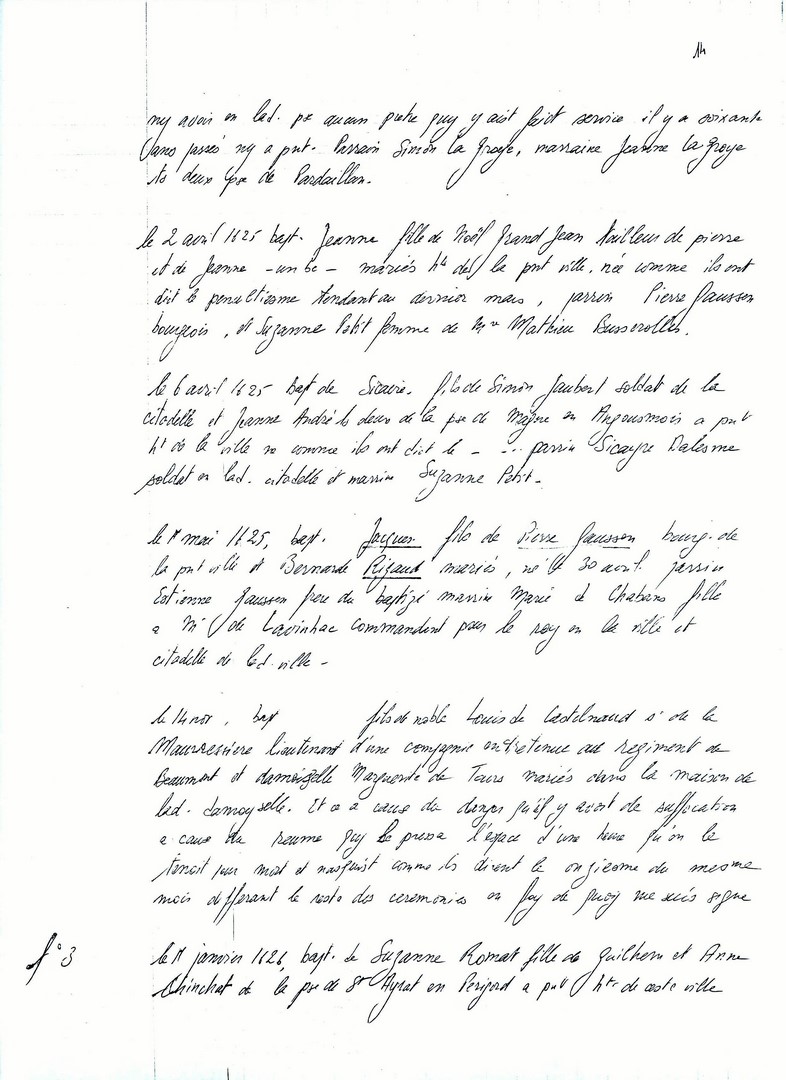 14
ny avois en lad. pse aucun pretre quy y aist faict service il y a soixante
ans passés ny a pnt. Parrain Simon La Groye, marraine Jeanne La Groye
ts deux pse de Pardaillan.
le 2 avril 1625 bapt. Jeanne fille de Noël Grand Jean tailleur de pierre
et de Jeanne - un bc - mariés ht de la pnt ville, née comme ils ont
dit le penultiesme tendant au dernier mars, parrin Pierre Gaussen
bourgeois, et Suzanne Petit femme de Mre Mathieu Busserolles.
le 6 avril 1625 bapt de Sicaire, fils de Simon Jaubert soldat de la
citadelle et Jeanne André ls deux de la pse de Magne en Angousmois a pnt
ht de la ville ne comme ils ont dict le - ... parrin Sicayre Dalesme
soldat en lad. citadelle et marrine Suzanne Petit -
le 1r mai 1625, bapt. Jacques fils de Pierre Gaussen bourg. de
la pnt ville et Bernarde Rigaud mariés, né le 30 avril. parrin
Estienne Gaussen frere du baptizé marrine Marie de Chabans fille
a Mr de Lavinhac commandant pour le roy en la ville et
citadelle de lad. ville -
le 14 nov, bapt fils de noble Louis de Castelnaud sr de la
Mauressiere lieutenant d'une compagnie entretenue au regiment de
Beaumont et damoizelle Marguerite de Tours mariés dans la maison de
lad. damoyselle. Et ce a cause du danger qu'il y avoit de suffocation
a cause du reume quy le pressa l'espace d'une heure qu'on le
tenoit pour mort et nasquist comme ils disent le onziesme du mesme
mois differant le reste des ceremonies en foy de quoy me suis signe
f° 3
le 1r janvier 1626, bapt. de Suzanne Romat fille de Guilhem et Anne
Chinchat de la pse de St Ayrat en Perigord a pnt hts de ceste ville